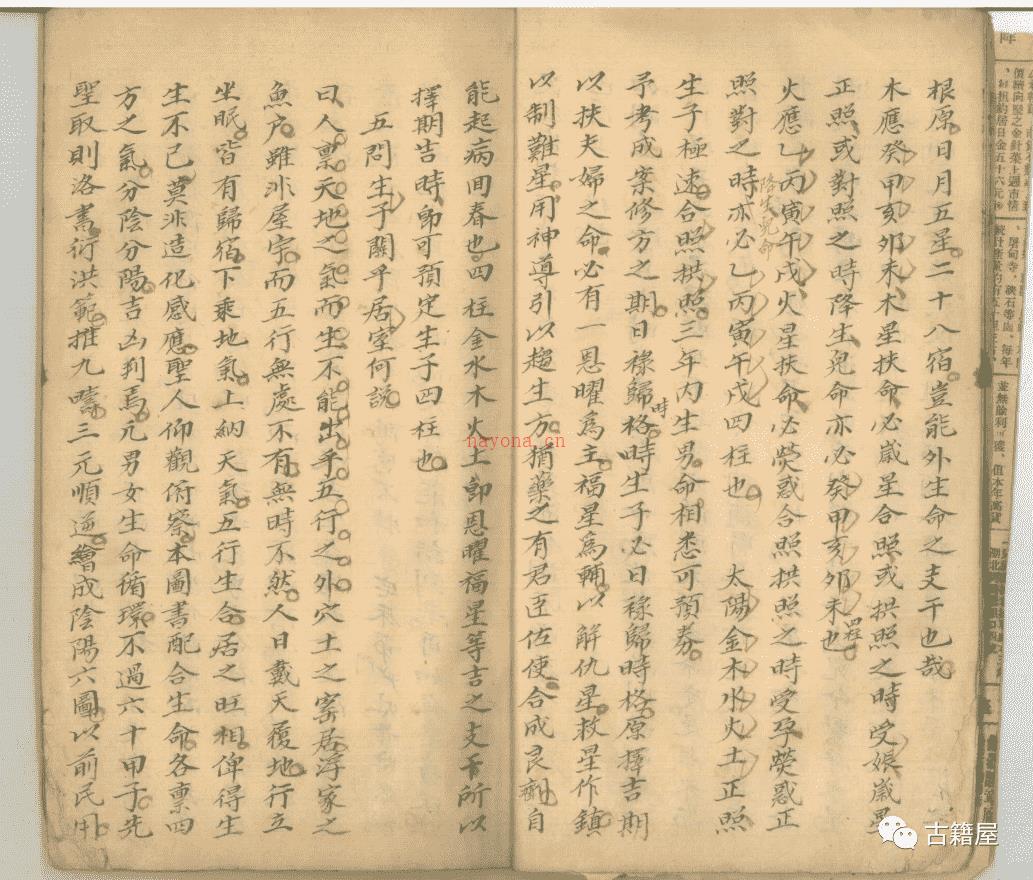 根原日月五星二十八宿豈能外生命之支干也哉
木應癸甲亥卯未木星扶命必歲星合照或拱照之時受娠歲星
正照或對照之時降生兒命亦必癸甲亥卯未四柱也
火應乙丙寅午戌火星扶命必熒惑合照拱照之時受孕熒惑正
照對之時降生兒命亦必乙丙寅午戌四柱也 太陽金木水火土正照
生子極速合照拱照三年內生男命相悉可預券
予考成案修方之期日祿歸時格時生子必日祿歸時格原擇吉期
以扶夫婦之命必有一恩曜為主福星為輔以解仇星救星作鎮
以制難星用神導引以趨生方猶藥之有君臣佐使合成良劑自
能起病回春也四柱金水木火土即恩曜福星等吉之支干所以
擇期吉時即可預定生子四柱也
五問生子關乎居室何說
曰人稟天地之氣而生不能出乎五行之外穴土之窰居浮家之
魚户雖非屋宇而五行無處不有無時不然人日戴天履地行立
坐眠皆有歸宿下乘地氣上納天氣五行生合居之旺相俾得生
生不已莫非造化感應聖人仰觀俯察本圖書配合生命各稟四
方之氣分陰分陽吉凶判焉元男女生命循環不過六十甲子先
聖取則洛書衍洪範推九疇三元順逆繪成陰陽六圖以前民用
nayona.cn
古籍屋